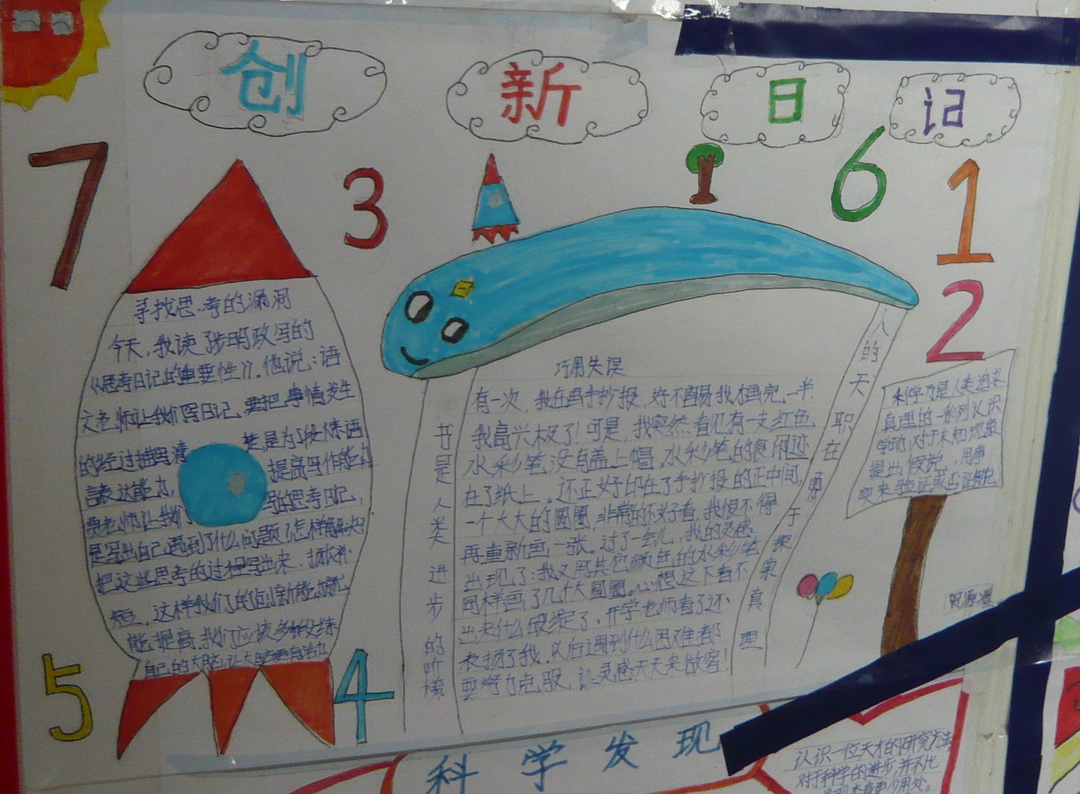 创新日记
7
3
6
1
2
5
4
寻找思考的漏洞
今天,我读了步明政写的
《思考日记的重要性》。他说:语
文老师让我们写日记,要把事情发生
的经过描写清楚是为了锻炼语
言表达能力,提高写作能力
是写出自己遇到了什么问题
把这些思考的过程写出来
短,这样我们的创新能力就
能提高,我们应该多
自己的大脑,让大脑更有活力
巧用失误
有一次,我在画手抄报,好不容易我才画完一半,
我高兴极了!可是,我突然看见有一支红色
水彩笔没有盖上帽,水彩笔的痕迹
在了纸上。还正好印在了手抄报的正中间
一个大大的圆圈,非常的不好看,我恨不得
再重新画一张。过了一会儿,我的灵感
出现了:我又用其它颜色的水彩笔
同样画了几个大圆圈。心想这下看不
出来什么破绽了。开学老师看了还
表扬了我,以后遇到什么困难都
要努力克服,让灵感天天来做客!
书是人类进步的阶梯
人的天职在勇于探索真理
科学乃是人类追求
真理的一系列认识
活动,对于未知现象
提出假说,用事
实来验证或否证假说
科学发现
认识一位天才的研究方法
对于科学的进步,并不比